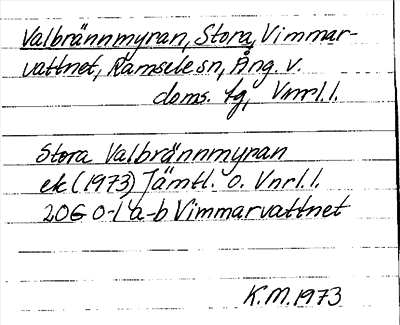 Valbrännmyran, Stora, Vimmar-
vattnet, Ramsele sn, Ång. v.
doms. fg, Vnrl.l.
Stora Valbrännmyran
ek (1973) Jämtl. o. Vnrl.l.
20G 0-1 a-b Vimmarvattnet
K.M. 1973